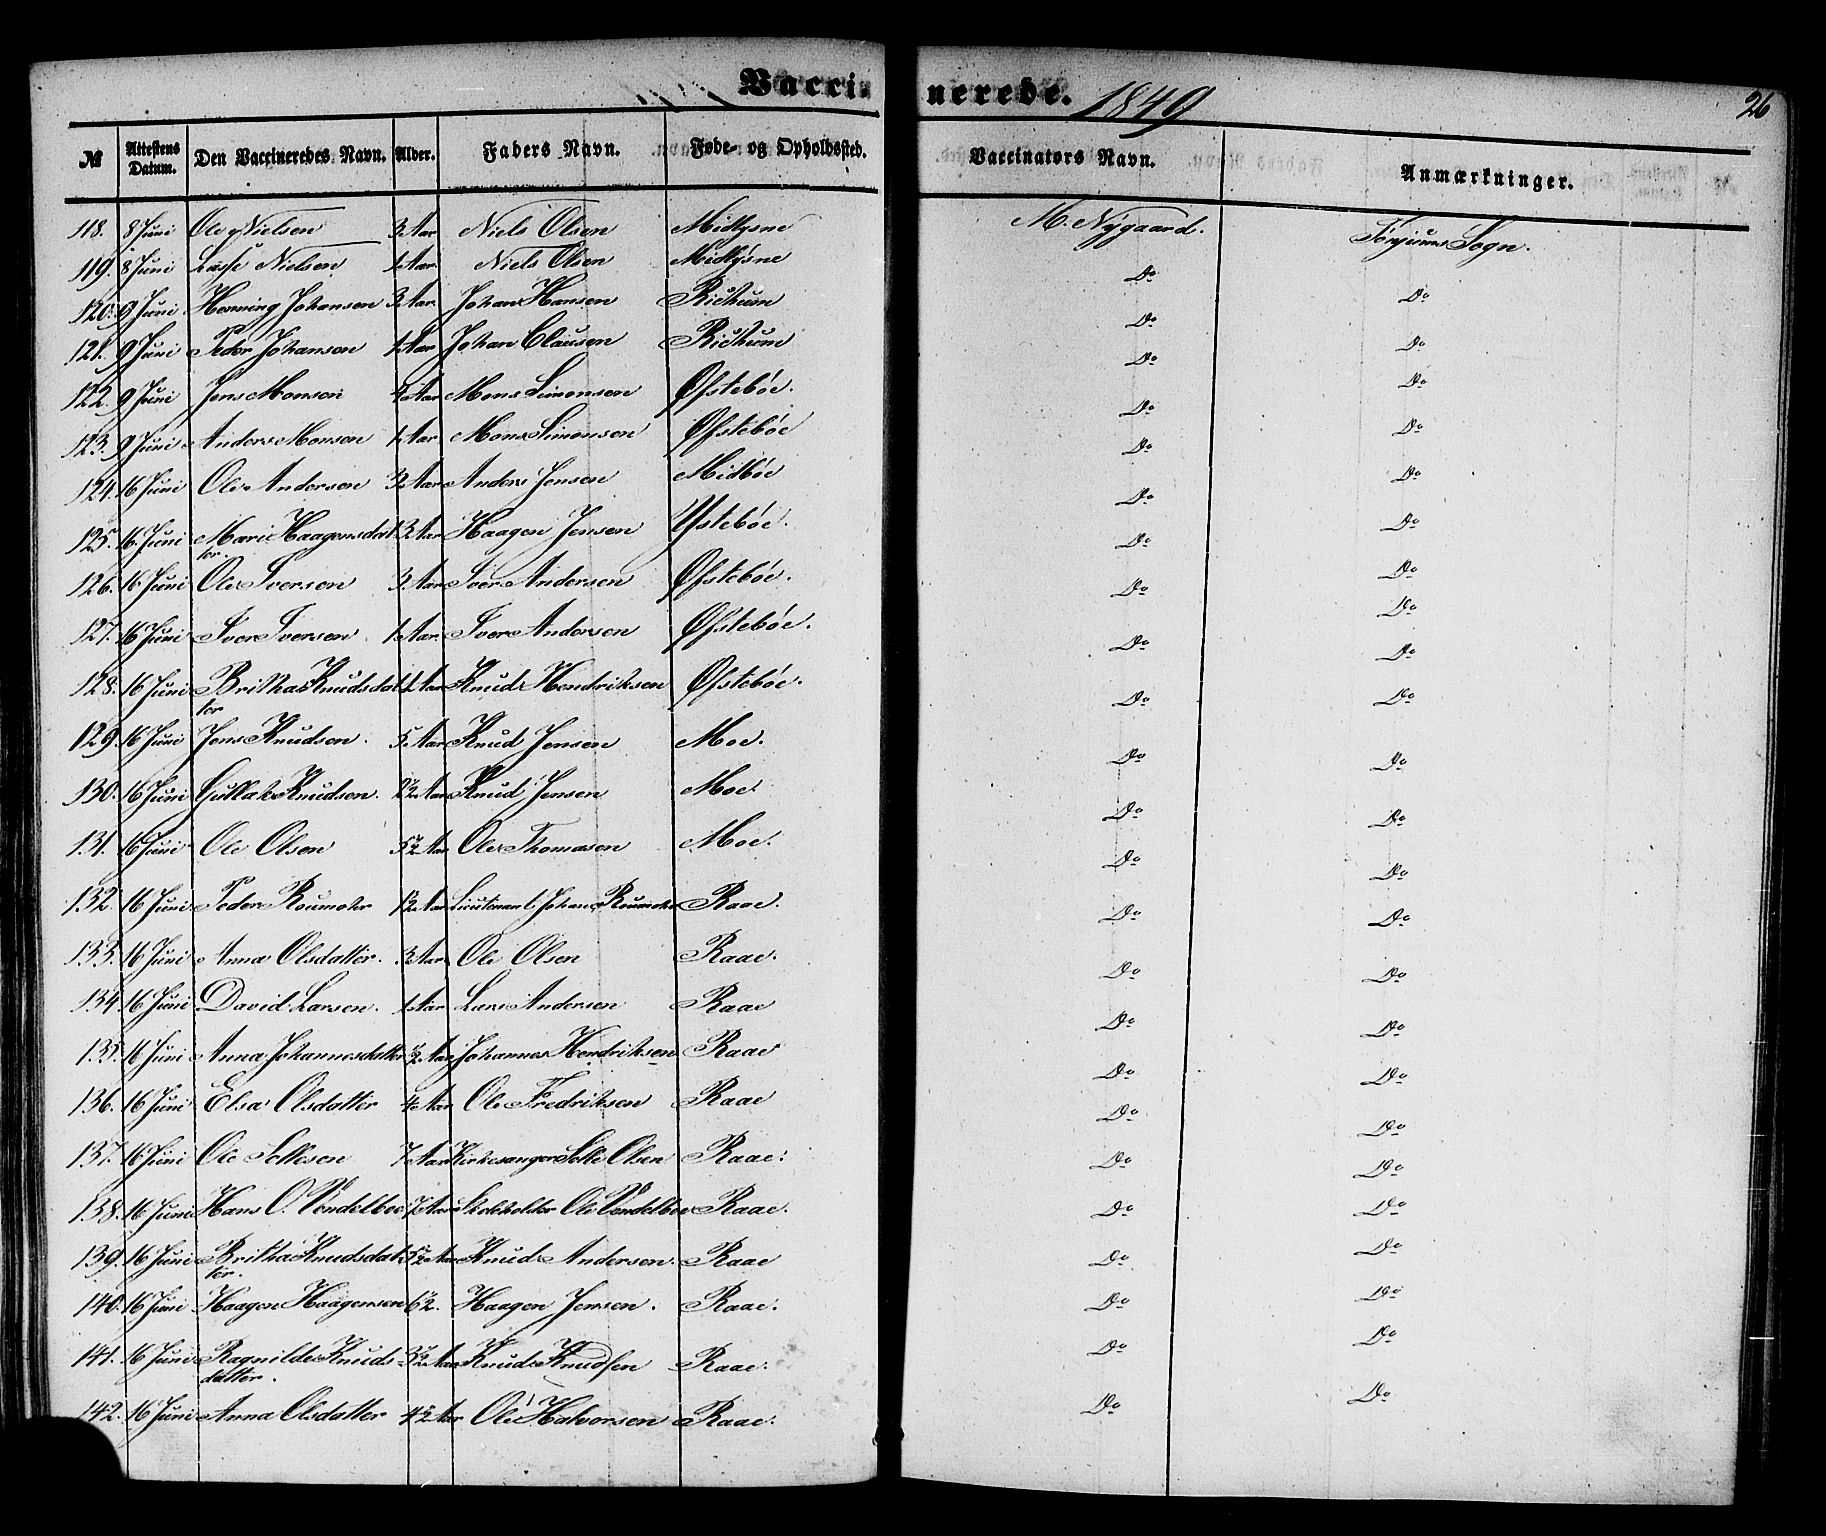 Vaccinerede. 1849 26
№ Attestens Datum. Den Vaccineredes Navn. Alder. Faders Navn. Føde- og Opholdssted. Vaccinators Navn. Anmærkninger.
118. 8 Juni Ole Nielsen 3 Aar Niels Olsen Midlysne M. Nygaard. Tønjums Sogn.
119. 8 Juni Lasse Nielsen 1 Aar. Niels Olsen Midlysne Do Do
120. 9 Juni Henning Johansen 3 Aar. Johan Hansen Do Do
121. 9 Juni Peder Johansen 1 Aar Johan Clausen Do Do
122. 9 Juni Jens Monsen Aar Mons Simonsen Øfstebøe. Do Do
123. 9 Juni Anders Monsen 1 Aar. Mons Simonsen Øfstebøe Do Do
124. 16 Juni Ole Andersen 3 Aar Anders Jensen Midbøe Do Do
125. 16 Juni Mari Haagensdat- Aar Haagen Jensen Ystebøe. Do Do
ter.
126. 16 Juni Ole Iversen 3 Aar Iver Andersen Øfstebøe. Do Do
127. 16 Juni Iver Iversen 1 Aar. Iver Andersen Øfstebøe. Do Do
128. 16 Juni Britha Knudsdat- Aar Knud Hendriksen Øfstebøe. Do Do
ter
129. 16 Juni Jens Knudsen. 5 Aar Knud Jensen Moe. Do Do
130. 16 Juni Gullak Knudsen. 2½ Aar Knud Jensen Moe. Do Do
131. 16 Juni Ole Olsen 5½ Aar Ole Thomasen Moe. Do Do
132. 16 Juni Peder Roumohr 1½ Aar Lieutenant Johan Roumohr Raae. Do Do
133. 16 Juni Anna Olsdatter. 3 Aar Ole Olsen Raae. Do Do
134. 16 Juni David Larsen. 1 Aar Lars Andersen Raae Do Do
135. 16 Juni Anna Johannesdatter ½ Aar Johannes Hendriksen Raae Do Do
136. 16 Juni Elsa Olsdatter 4 Aar Ole Fredriksen Raae Do Do
137. 16 Juni Ole Solfesen 7 Aar Kirkesanger Solfe Olsen Raae. Do Do
138. 16 Juni Hans O. Vendelboe 7 Aar Ole Vendelboe Raae. Do Do
139. 16 Juni Britha Knudsdat- 5½ Aar Knud Andersen. Raae Do Do
ter.
140. 16 Juni Haagen Haagensen 6½. Haagen Jensen. Raae. Do Do
141. 16 Juni Ragnilde Knuds- 3½ Aar Knud Knudsen Raae. Do Do
datter.
142. 16 Juni Anna Olsdatter 4½ Aar Ole Halvorsen Raae. Do Do